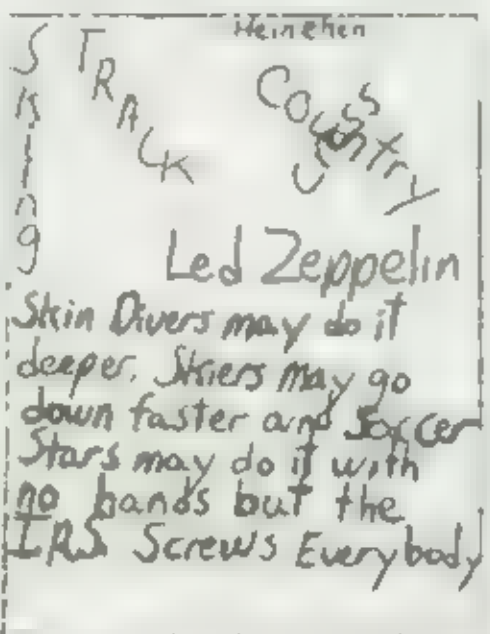 Heinehen
Skiing
TRACK
Cross
Country
Led Zeppelin
Skin Divers may do it
deeper. Skiers may go
down faster and Soccer
Stars may do it with
no hands but the
IRS Screws Everybody